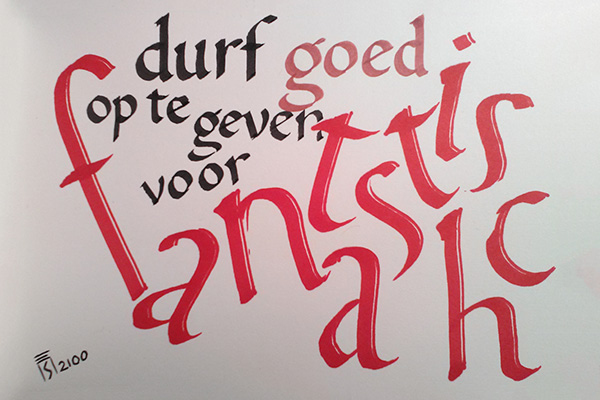 durf goed
op te geven
voor
fantastisch
2100